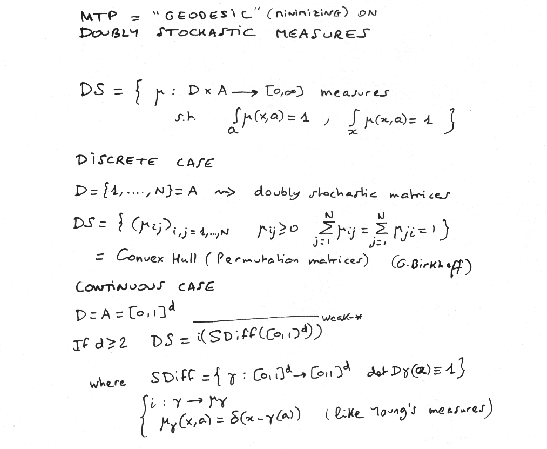 MTP = "GEODESIC" (MINIMIZING) ON
DOUBLY STOCHASTIC MEASURES
DS = { μ : D × A → [0,∞] measures
s.t. ∫_a μ(x,a) = 1 , ∫_x μ(x,a) = 1 }
DISCRETE CASE
D = {1, ...., N} = A ⇝ doubly stochastic matrices
DS = { (μij)i,j=1,..,N μij ≥ 0 ∑_{j=1}^N μij = ∑_{j=1}^N μji = 1 }
= Convex Hull (Permutation matrices) (G. Birkhoff)
CONTINUOUS CASE
D = A = [0,1]^d
If d ≥ 2 DS = \overline{i(SDiff([0,1]^d))}^{weak-*}
where SDiff = { γ : [0,1]^d → [0,1]^d det Dγ(a) ≡ 1 }
{ i : γ → μγ
μγ(x,a) = δ(x - γ(a)) (like Young's measures)